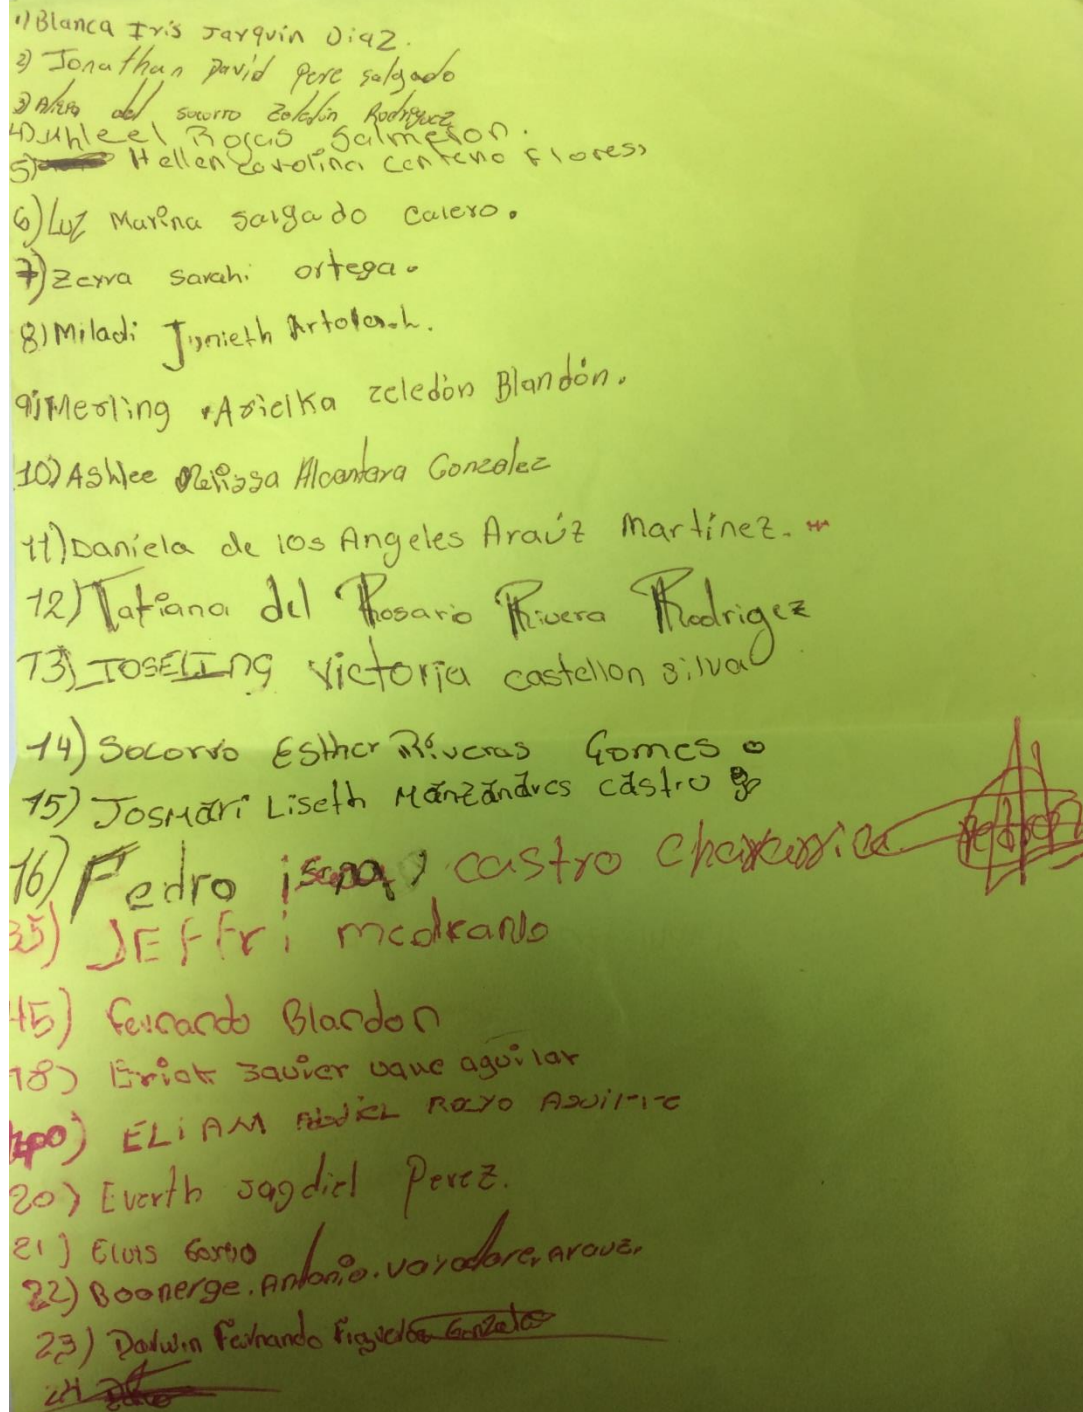 1) Blanca Iris Jarquin Diaz.
2) Jonathan David Pere salgado
3) del socorro Zeledón Rodriguez
4) Rojas Salmeron.
5) Hellen carolina centeno Flores
6) Luz Marina salgado calero.
7) Zerra sarahi ortega.
8) Miladi Junieth Artola.L.
9) Merling Arielka zeledòn Blandón.
10) Ashlee Melissa Alcantara Gonzalez
11) Daniela de los Angeles Araúz Martínez.
12) Tatiana del Rosario Rivera Rodrigez
13) JOSELING victoria castellon silva
14) Socorro Esther Riveras Gomes
15) Josmari Liseth Manzanares castro
16) Pedro castro
35) JEffri medrano
45) Fernando Blandon
18) Erick Javier vaue aguilar
ELIAM Abdiel Rayo
20) Everth Jagdiel Perez.
21) Elvis
22) Boonerge. Antonio. Arauz.
23) Darwin Fernando Figueroa Gonzalez
24